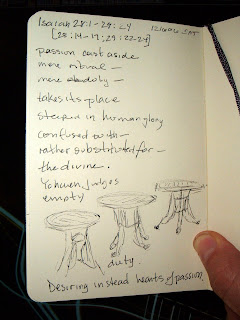 Isaiah 28:1-29:24 SAT
passion cast aside
mere ritual –
mere duty –
takes its place
steeped in human glory
confused with –
rather substituted for –
the divine.
Yahweh judges
empty
duty.
Desiring instead hearts of passion.